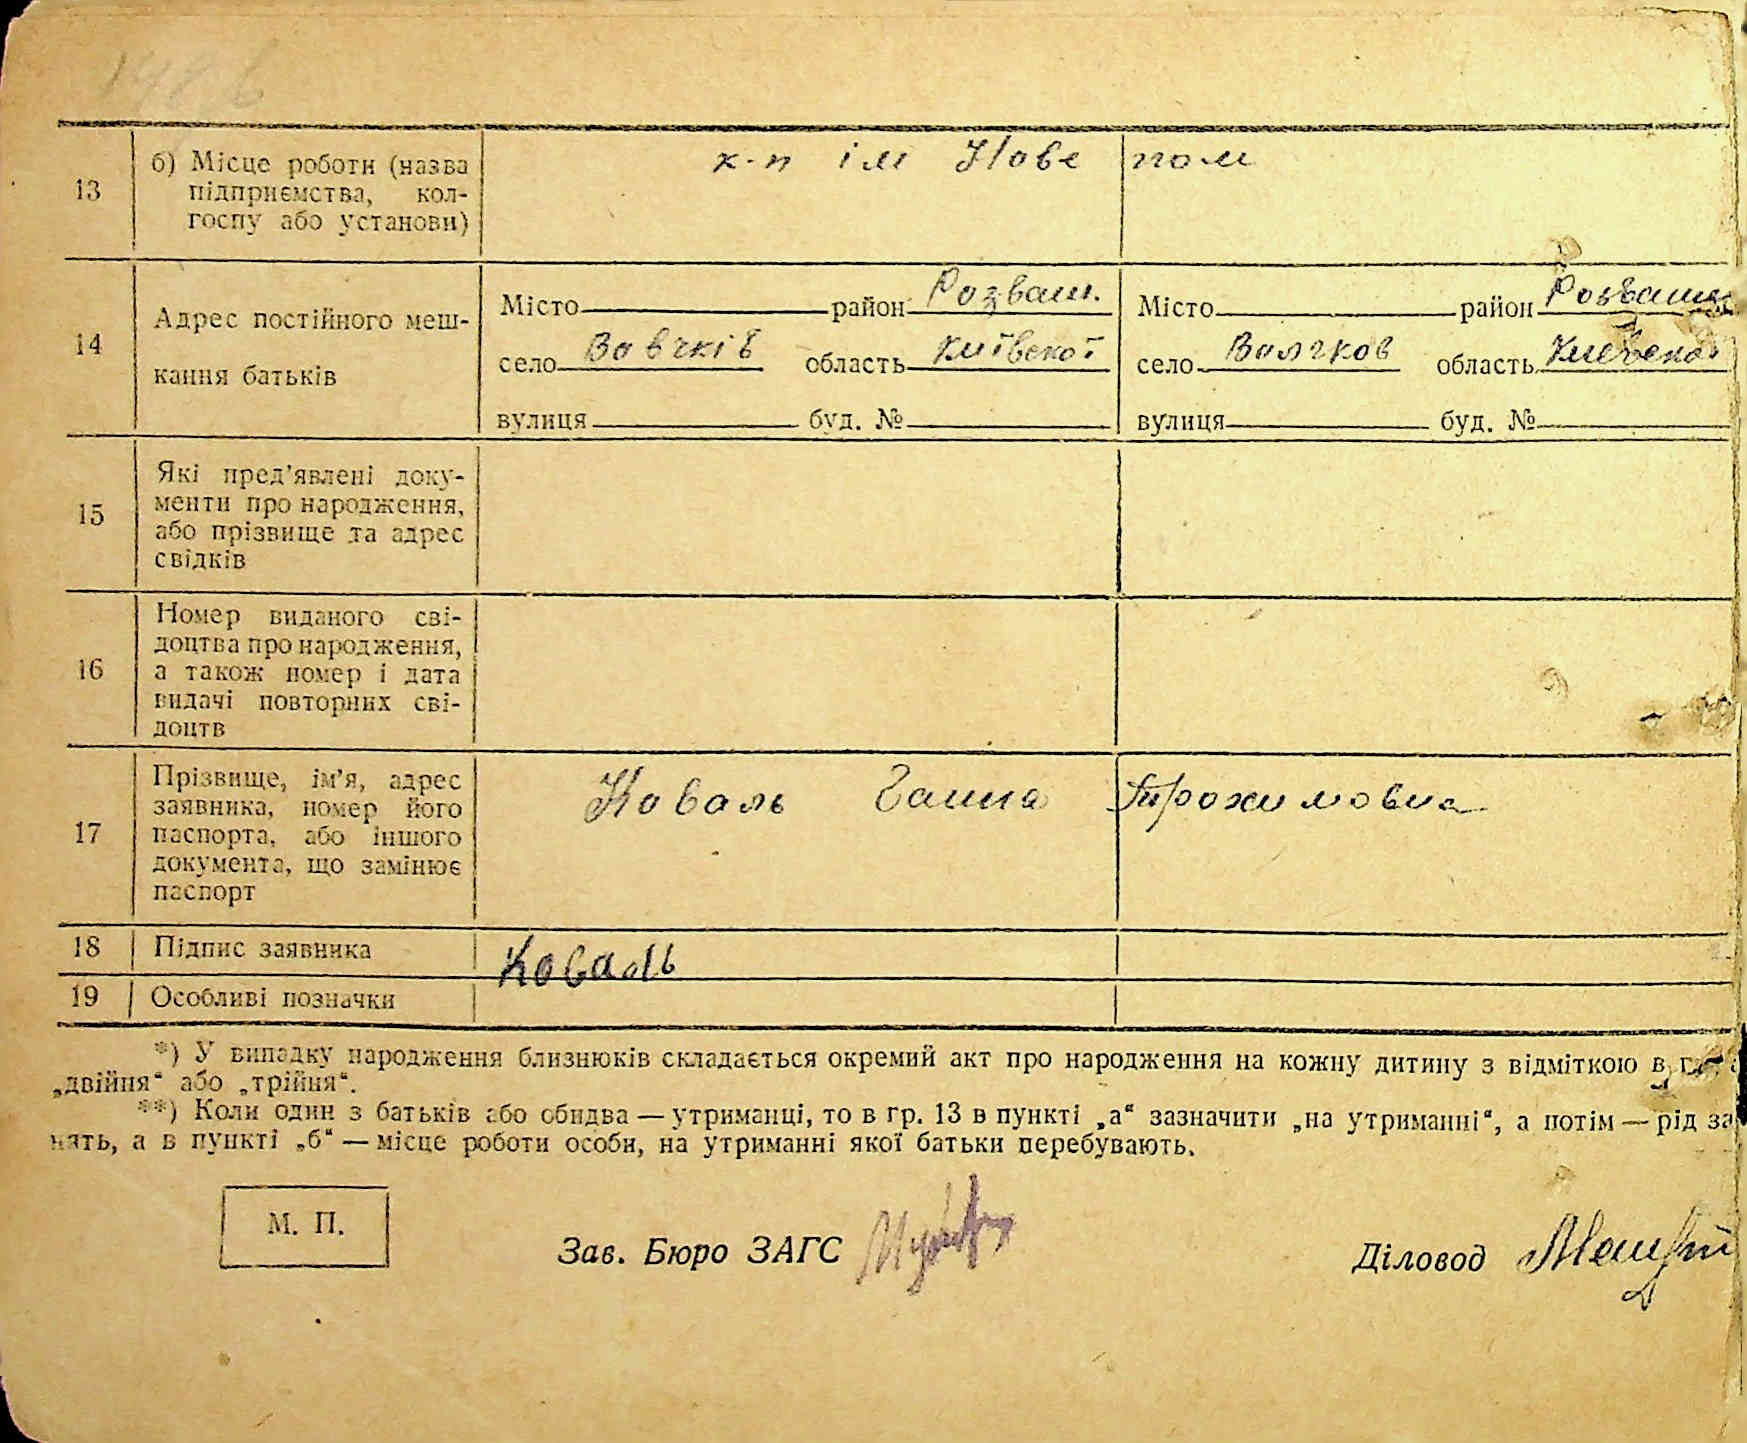 13
б) Місце роботи (назва
підприємства, кол-
госпу або установи)
к-п ім Нове пом
14
Адрес постійного меш-
кання батьків
Місто район Розваш.
село Вовчків область Київскої
вулиця буд. №
Місто район Розваш
село Волчков область
вулиця буд. №
15
Які пред’явлені доку-
менти про народження,
або прізвище та адрес
свідків
16
Номер виданого сві-
доцтва про народження,
а також номер і дата
видачі повторних сві-
доцтв
17
Прізвище, ім’я, адрес
заявника, номер його
паспорта, або іншого
документа, що замінює
паспорт
Коваль Ганна Трохимовна
18 Підпис заявника Коваль
19 Особливі позначки
*) У випадку народження близнюків складається окремий акт про народження на кожну дитину з відміткою в
„двійня“ або „трійня“.
**) Коли один з батьків або обидва — утриманці, то в гр. 13 в пункті „а“ зазначити „на утриманні“, а потім — рід за
нять, а в пункті „б“ — місце роботи особи, на утриманні якої батьки перебувають.
М. П.
Зав. Бюро ЗАГС
Діловод